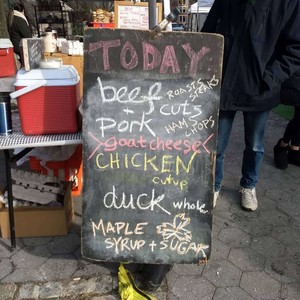 TODAY
beef ROASTS STEAKS
+ cuts
pork HAMS CHOPS
goat cheese
CHICKEN
cutup
duck whole
MAPLE
SYRUP + SUGAR